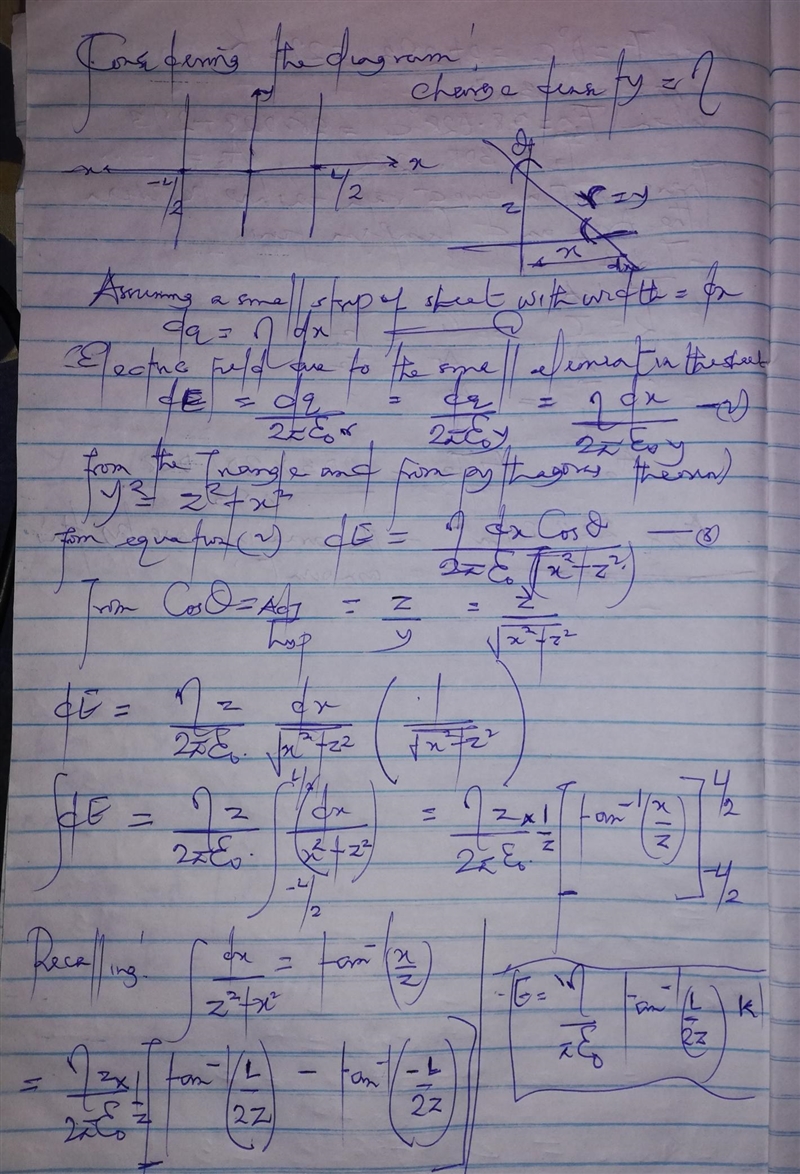 Considering the diagram!
charge density = η
y
x x
-L/2 L/2
θ
z r = y
x
dx
Assuming a small strip of sheet with width = dx
dq = η dx ——— ①
Electric field due to the small element in the sheet
dE = dq/2πε₀r = dq/2πε₀y = η dx/2πε₀y —(2)
from the Triangle and from pythagoras theorem
y² = z² + x²
from equation (2) dE = η dx Cosθ/2πε₀√(x²+z²) —③
from Cosθ = Adj/hyp = z/y = z/√(x²+z²)
dE = ηz/2πε₀ dx/√(x²+z²) (1/√(x²+z²))
∫dE = ηz/2πε₀ ∫_{-L/2}^{L/2} (dx/x²+z²) = ηz/2πε₀ × 1/z [tan⁻¹(x/z)]_{-L/2}^{L/2}
Recalling! ∫ dx/z²+x² = tan⁻¹(x/z)
= ηz/2πε₀ × 1/z [tan⁻¹(L/2z) - tan⁻¹(-L/2z)]
E = η/πε₀ tan⁻¹(L/2z) k